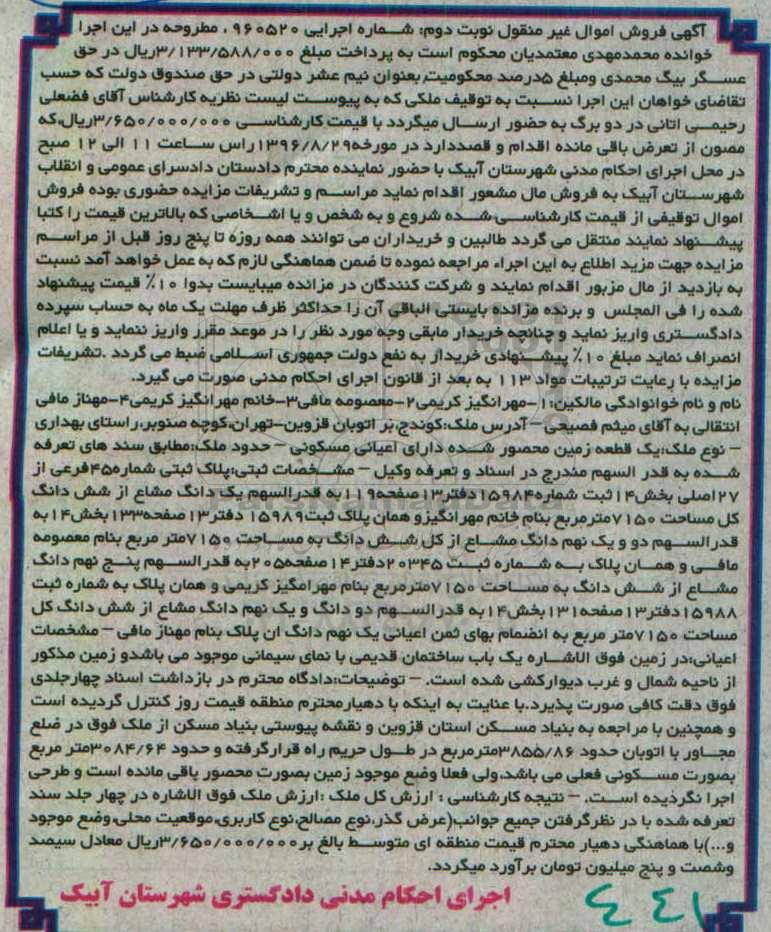 آگهی فروش اموال غیر منقول نوبت دوم: شماره اجرایی ۹۶۰۵۲۰ ، مطروحه در این اجرا
خوانده محمدمهدی معتمدیان محکوم است به پرداخت مبلغ ۳/۱۳۳/۵۸۸/۰۰۰ریال در حق
عسگر بیگ محمدی ومبلغ ۵درصد محکومیت بعنوان نیم عشر دولتی در حق صندوق دولت که حسب
تقاضای خواهان این اجرا نسبت به توقیف ملکی که به پیوست لیست نظریه کارشناس آقای فضعلی
رحیمی اتانی در دو برگ به حضور ارسال میگردد با قیمت کارشناسی ۳/۶۵۰/۰۰۰/۰۰۰ریال،که
مصون از تعرض باقی مانده اقدام و قصددارد در مورخه۱۳۹۶/۸/۲۹راس ساعت ۱۱ الی ۱۲ صبح
در محل اجرای احکام مدنی شهرستان آبیک با حضور نماینده محترم دادستان دادسرای عمومی و انقلاب
شهرستان آبیک به فروش مال مشعور اقدام نماید مراسم و تشریفات مزایده حضوری بوده فروش
اموال توقیفی از قیمت کارشناسی،شده شروع و به شخص و یا اشخاصی که بالاترین قیمت را کتبا
پیشنهاد نمایند منتقل می گردد طالبین و خریداران می توانند همه روزه تا پنج روز قبل از مراسم
مزایده جهت مزید اطلاع به این اجراء مراجعه نموده تا ضمن هماهنگی لازم که به عمل خواهد آمد نسبت
به بازدید از مال مزبور اقدام نمایند و شرکت کنندگان در مزانده میبایست بدوا ۱۰٪ قیمت پیشنهاد
شده را فی المجلس و برنده مزانده بایستی الباقی آن را حداکثر ظرف مهلت یک ماه به حساب سپرده
دادگستری واریز نماید و چنانچه خریدار مابقی وجه مورد نظر را در موعد مقرر واریز ننماید و یا اعلام
انصراف نماید مبلغ ۱۰٪ پیشنهادی خریدار به نفع دولت جمهوری اسلامی ضبط می گردد .تشریفات
مزایده با رعایت ترتیبات مواد ۱۱۳ به بعد از قانون اجرای احکام مدنی صورت می گیرد.
نام و نام خوانوادگی مالکین:۱-مهرانگیز کریمی۲-معصومه مافی۳-خانم مهرانگیز کریمی۴-مهناز مافی
انتقالی به آقای میثم فصیحی– آدرس ملک:کوندج،بر اتوبان قزوین-تهران،کوچه صنوبر،راستای بهداری
– نوع ملک:یک قطعه زمین محصور شده دارای اعیانی مسکونی – حدود ملک:مطابق سند های تعرفه
شده به قدر السهم مندرج در اسناد و تعرفه وکیل – مشخصات ثبتی:پلاک ثبتی شماره۴۵فرعی از
۲۷اصلی بخش۱۴ثبت شماره۱۵۹۸۴دفتر۱۳صفحه۱۱۹به قدرالسهم یک دانگ مشاع از شش دانگ
کل مساحت ۷۱۵۰مترمربع بنام خانم مهرانگیزو همان پلاک ثبت۱۵۹۸۹ دفتر۱۳صفحه۱۳۳بخش۱۴به
قدرالسهم دو و یک نهم دانگ مشاع از کل شش دانگ به مساحت ۷۱۵۰متر مربع بنام معصومه
مافی و همان پلاک به شماره ثبت ۲۰۳۴۵دفتر۱۴صفحه۲۰۵به قدرالسهم پنج نهم دانگ
مشاع از شش دانگ به مساحت ۷۱۵۰مترمربع بنام مهرامگیز کریمی و همان پلاک به شماره ثبت
۱۵۹۸۸دفتر۱۳صفحه۱۳۱بخش۱۴به قدرالسهم دو دانگ و یک نهم دانگ مشاع از شش دانگ کل
مساحت ۷۱۵۰متر مربع به انضمام بهای ثمن اعیانی یک نهم دانگ ان پلاک بنام مهناز مافی – مشخصات
اعیانی:در زمین فوق الاشاره یک باب ساختمان قدیمی با نمای سیمانی موجود می باشدو زمین مذکور
از ناحیه شمال و غرب دیوارکشی شده است. – توضیحات:دادگاه محترم در بازداشت اسناد چهارجلدی
فوق دقت کافی صورت پذیرد.با عنایت به اینکه با دهیارمحترم منطقه قیمت روز کنترل گردیده است
و همچنین با مراجعه به بنیاد مسکن استان قزوین و نقشه پیوستی بنیاد مسکن از ملک فوق در ضلع
مجاور با اتوبان حدود ۳۸۵۵/۸۶مترمربع در طول حریم راه قرارگرفته و حدود ۳۰۸۴/۶۴متر مربع
بصورت مسکونی فعلی می باشد،ولی فعلا وضع موجود زمین بصورت محصور باقی مانده است و طرحی
اجرا نگردیده است. – نتیجه کارشناسی : ارزش کل ملک :ارزش ملک فوق الاشاره در چهار جلد سند
تعرفه شده با در نظرگرفتن جمیع جوانب(عرض گذر،نوع مصالح،نوع کاربری،موقعیت محلی،وضع موجود
و...)با هماهنگی دهیار محترم قیمت منطقه ای متوسط بالغ بر۳/۶۵۰/۰۰۰/۰۰۰ریال معادل سیصد
وشصت و پنج میلیون تومان برآورد میگردد.
اجرای احکام مدنی دادگستری شهرستان آبیک